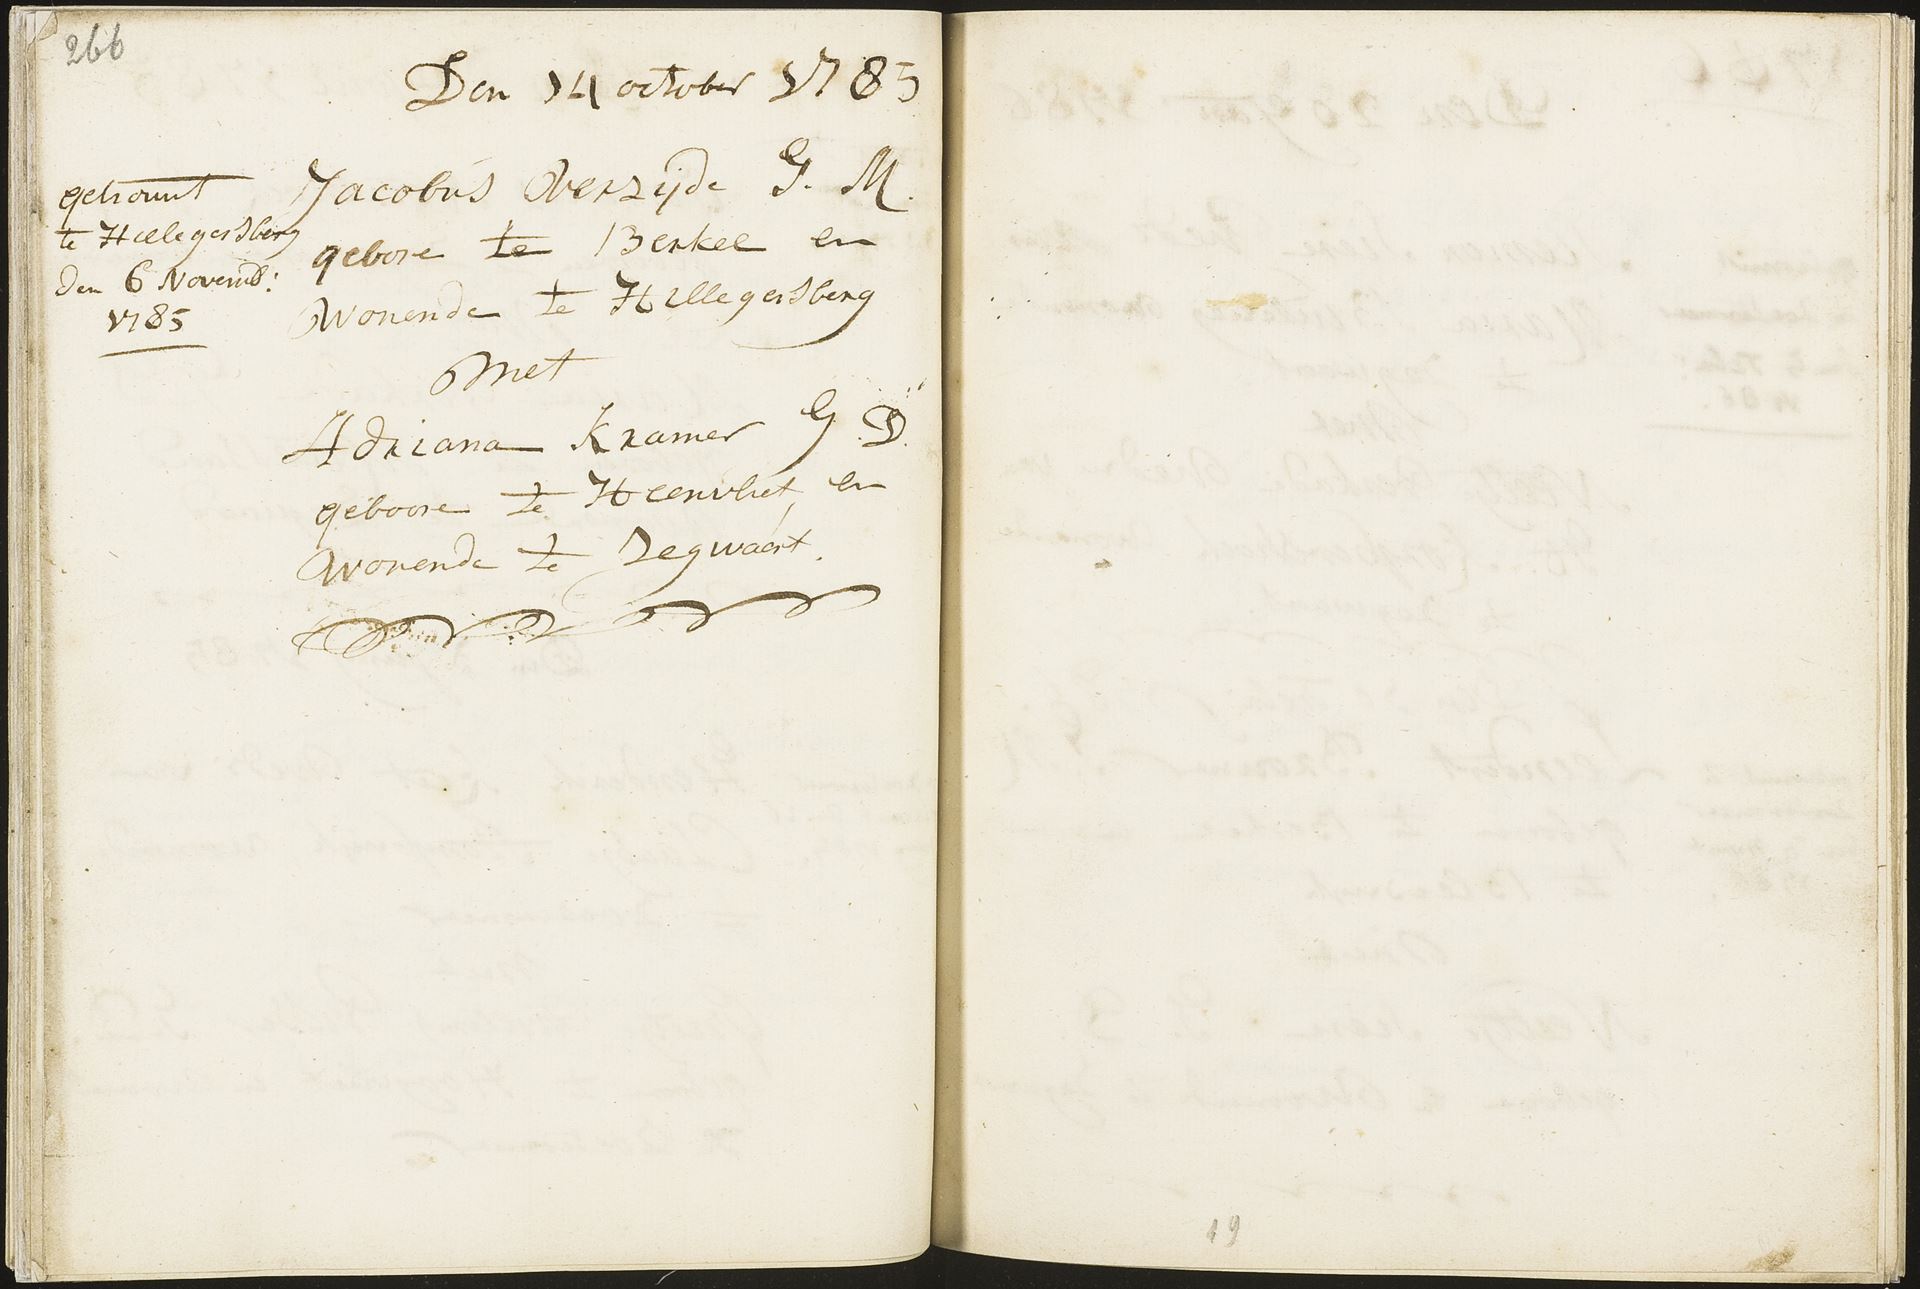 266
Den 14 october 1785
getrouwt
te Hillegersberg
den 6 Novemb:
1785
Jacobus Overzijde G. M.
gebore te Berkel en
Wonende te Hillegersberg
Met
Adriana Kramer G D.
geboore te Heenvliet en
Wonende te Zegwaert.
19